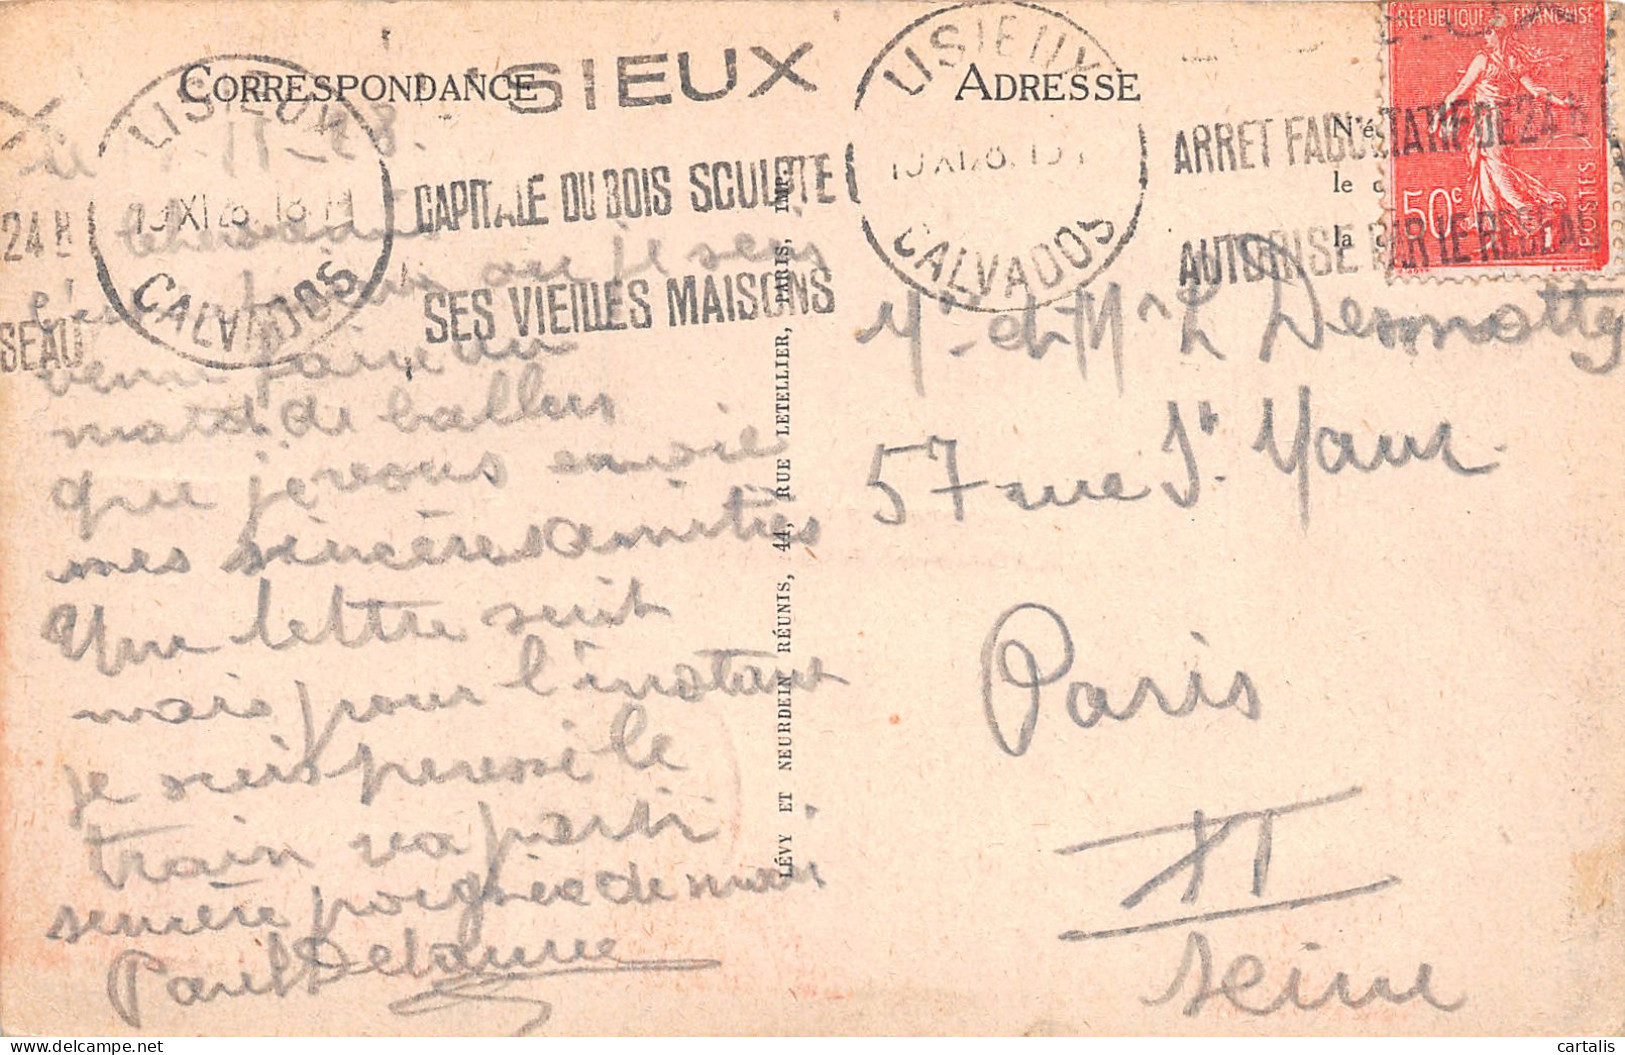 CORRESPONDANCE
ADRESSE
LISIEUX
CALVADOS
SIEUX
CAPITALE DU BOIS SCULPTE
SES VIEILLES MAISONS
LISIEUX
CALVADOS
ARRET FACULTATIF DE 24 H
AUTORISE PAR LE RESEAU
24 H
SEAU
REPUBLIQUE FRANÇAISE
50c
POSTES
N'é
le
la
11-28.
où je suis
venu faire un
match de
que je vous envoie
mes sincères amitiés
Une lettre suit
mais pour l'instant
je suis pressé le
train va partir
sincère poignée de main
Paul Delaunne
LÉVY ET NEURDEIN RÉUNIS, 44, RUE LETELLIER, PARIS, IMP.
Mr et Mme L Desmotty
57 rue St. Maur
Paris
XI
Seine
cartalis
delcampe.net